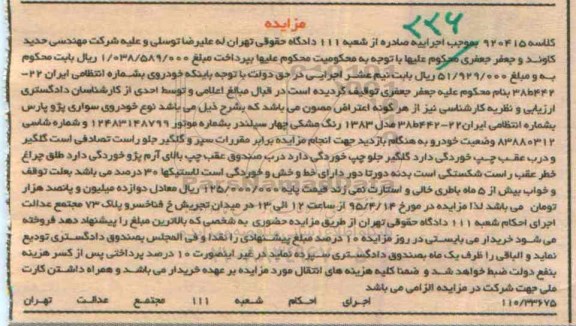 مزایده
۲۲۶
کلاسه ۹۲۰۴۱۵ بموجب اجراییه صادره از شعبه ۱۱۱ دادگاه حقوقی تهران له علیرضا توسلی و علیه شرکت مهندسی حدید
کاوند و جعفر جعفری محکوم علیها با توجه به محکومیت محکوم علیها بپرداخت مبلغ ۱/۰۳۸/۵۸۹/۰۰۰ ریال بابت محکوم
به و مبلغ ۵۱/۹۲۹/۰۰۰ ریال بابت نیم عشر اجرایی در حق دولت با توجه باینکه خودروی بشماره انتظامی ایران ۲۲-
۳۸ط۴۴۲ بنام محکوم علیه جعفر جعفری توقیف گردیده است در قبال مبالغ اعلامی و توسط احدی از کارشناسان دادگستری
ارزیابی و نظریه کارشناسی نیز از هر گونه اعتراض مصون می باشد که بشرح ذیل می باشد نوع خودروی سواری پژو پارس
بشماره انتظامی ایران۲۲-۴۴۲ط۳۸ مدل ۱۳۸۳ رنگ مشکی چهار سیلندر بشماره موتور ۱۲۴۸۳۱۴۸۷۹۹ و شماره شاسی
۸۳۸۸۰۳۱۲ وضعیت خودرو به هنگام بازدید جهت انجام مزایده برابر مقررات سپر و گلگیر جلو راست تصادفی است گلگیر
و درب عقب چپ خوردگی دارد گلگیر جلو چپ خوردگی دارد درب صندوق عقب چپ بالای آرم پژو خوردگی دارد طلق چراغ
خطر عقب راست شکستگی است بدنه دورتا دور دارای خط و خش و خوردگی است لاستیکها ۳۰ درصد می باشد بعلت توقف
و خواب بیش از ۵ ماه باطری خالی و استارت نمی زند قیمت پایه ۱۲۵/۰۰۰/۰۰۰ ریال معادل دوازده میلیون و پانصد هزار
تومان می باشد لذا مزایده در مورخ ۹۵/۴/۱۴ از ساعت ۱۲ الی ۱۳ در میدان تجریش خ فناخسرو پلاک ۷۳ مجتمع عدالت
اجرای احکام شعبه ۱۱۱ دادگاه حقوقی تهران از طریق مزایده حضوری به شخصی که بالاترین مبلغ را پیشنهاد دهد فروخته
می شود خریدار می بایستی در روز مزایده ۱۰ درصد مبلغ پیشنهادی را نقدا و فی المجلس بصندوق دادگستری تودیع
نماید و الباقی را ظرف یک ماه بصندوق دادگستری سپرده نماید در غیر اینصورت ۱۰ درصد پرداختی پس از کسر هزینه
بنفع دولت ضبط خواهد شد و ضمنا کلیه هزینه های انتقال مورد مزایده بر عهده خریدار می باشد و همراه داشتن کارت
ملی جهت شرکت در مزایده الزامی می باشد
۱۱۰/۳۳۶۷۵ اجرای احکام شعبه ۱۱۱ مجتمع عدالت تهران